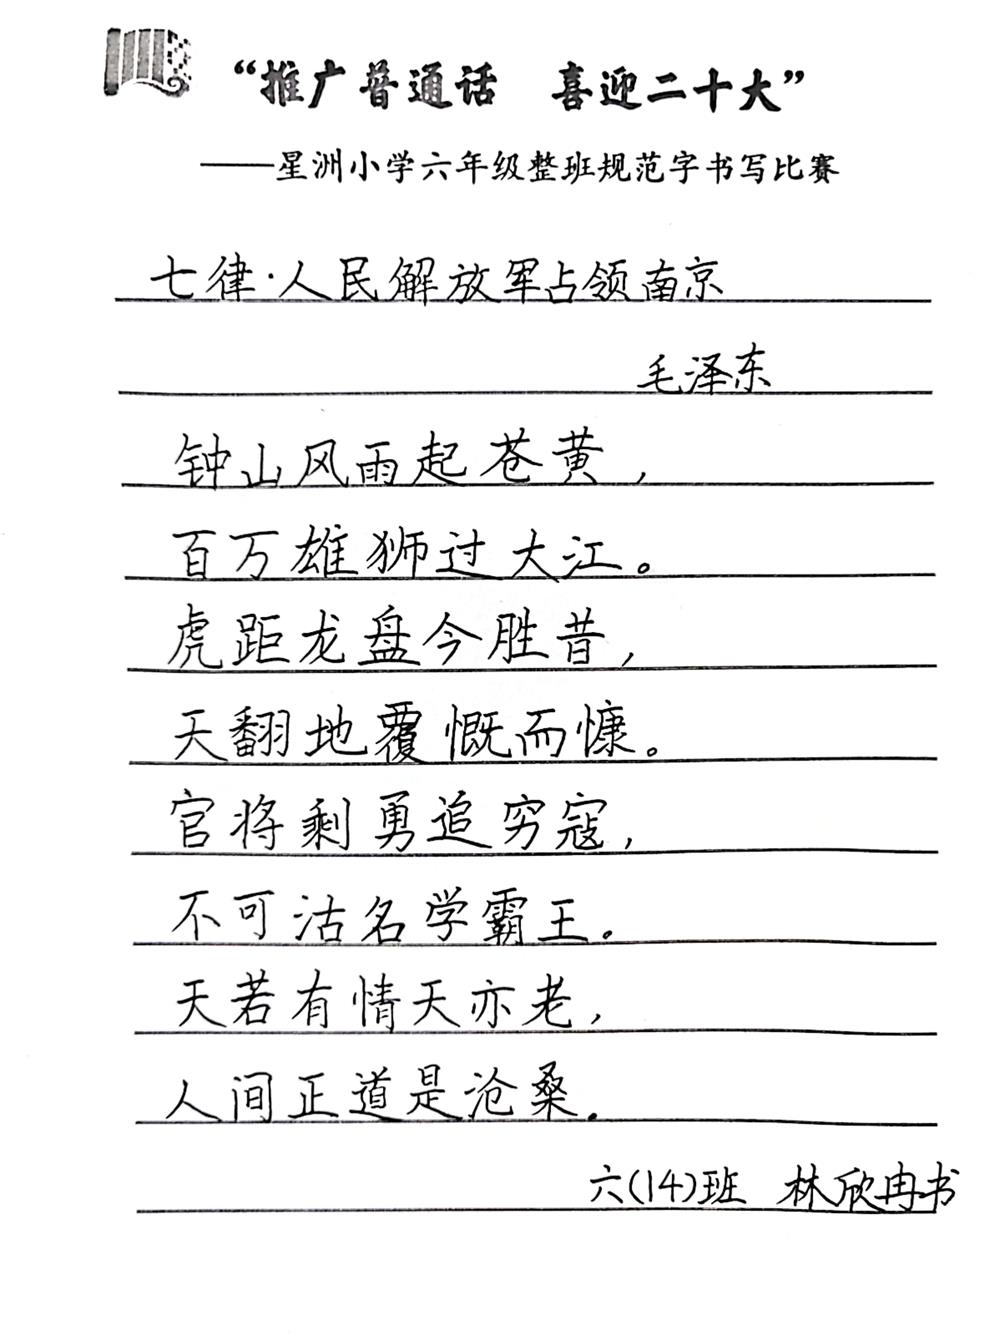 “推广普通话 喜迎二十大”
——星洲小学六年级整班规范字书写比赛
七律·人民解放军占领南京
毛泽东
钟山风雨起苍黄,
百万雄狮过大江。
虎距龙盘今胜昔,
天翻地覆慨而慷。
官将剩勇追穷寇,
不可沽名学霸王。
天若有情天亦老,
人间正道是沧桑。
六(14)班 林欣冉书